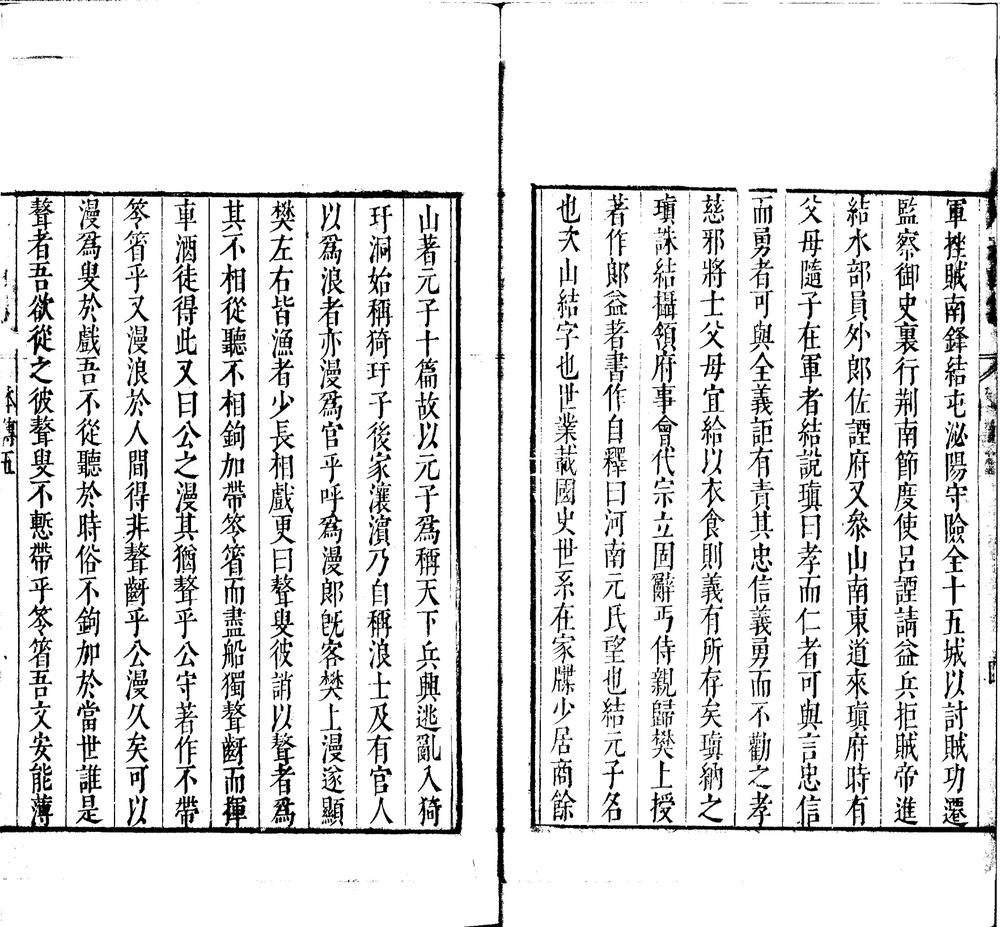 軍挫賊南鋒結屯泌陽守險全十五城以討賊功遷
監察御史裏行荆南節度使呂諲請益兵拒賊帝進
結水部員外郎佐諲府又叅山南東道來瑱府時有
父母隨子在軍者結說瑱曰孝而仁者可與言忠信
而勇者可與全義詎有責其忠信義勇而不勸之孝
慈邪將士父母宜給以衣食則義有所存矣瑱納之
瑱誅結攝領府事會代宗立固辭丐侍親歸樊上授
著作郞益著書作自釋曰河南元氏望也結元子名
也次山結字也世業載國史世系在家牒少居商餘
山著元子十篇故以元子爲稱天下兵興逃亂入猗
玗洞始稱猗玗子後家瀼濵乃自稱浪士及有官人
以爲浪者亦漫爲官乎呼爲漫郎旣客樊上漫遂顯
樊左右皆漁者少長相戲更曰聱叟彼誚以聱者爲
其不相從聽不相鉤加帶笭箵而盡船獨聱齖而揮
車酒徒得此又曰公之漫其猶聱乎公守著作不帶
笭箵乎又漫浪於人間得非聱齖乎公漫久矣可以
漫爲叟於戲吾不從聽於時俗不鉤加於當世誰是
聱者吾欲從之彼聱叟不慙帶乎笭箵吾又安能薄
本傳 五